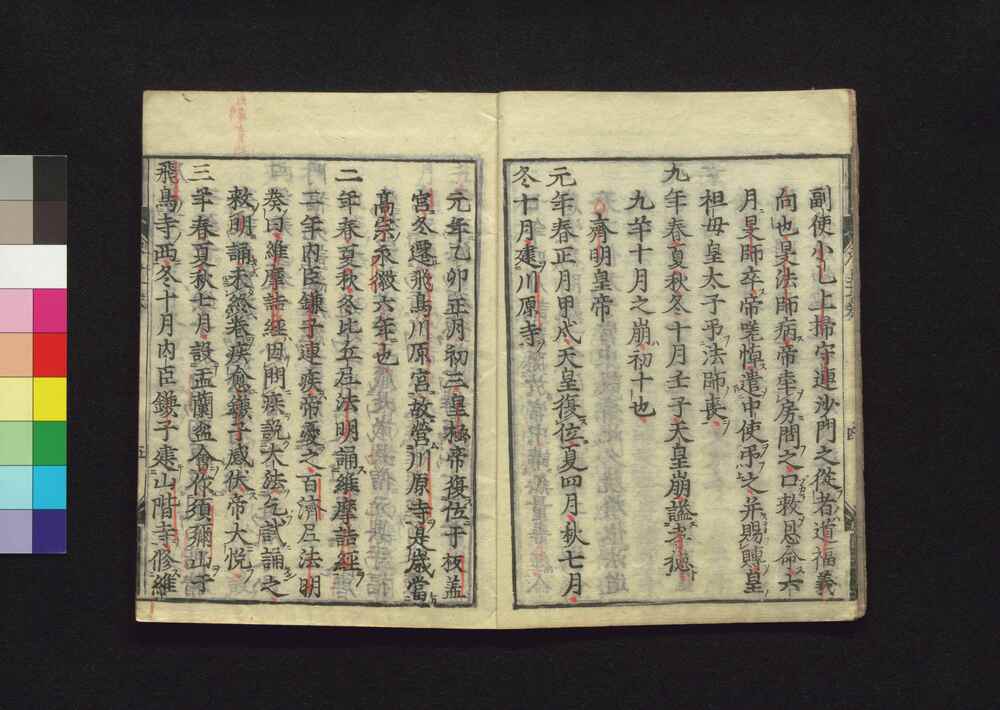 副使小乙上掃守連沙門之從者道福義
向也旻法師病帝幸房問之口敕恩命六
月旻師卒帝嗟悼遣中使弔之并賜賻皇
祖母皇太子弔法師喪
九年春夏秋冬十月壬子天皇崩謚孝德
九年十月之崩初十也
齊明皇帝
元年春正月甲戌天皇復位夏四月秋七月
冬十月建川原寺
元年乙卯正月初三皇極帝復位于板蓋
宮冬遷飛鳥川原宮故營川原寺其歲當
高宗永徽六年也
二年春夏秋冬比丘尼法明誦維摩詰經
二年内臣鎌子連疾帝憂之百濟尼法明
奏曰維摩詰經因問疾說大法乞試誦之
敕明誦未終卷疾愈鎌子感伏帝大悅
三年春夏秋七月設盂蘭盆會作須彌山于
飛鳥寺西冬十月内臣鎌子建山階寺修維
四
五